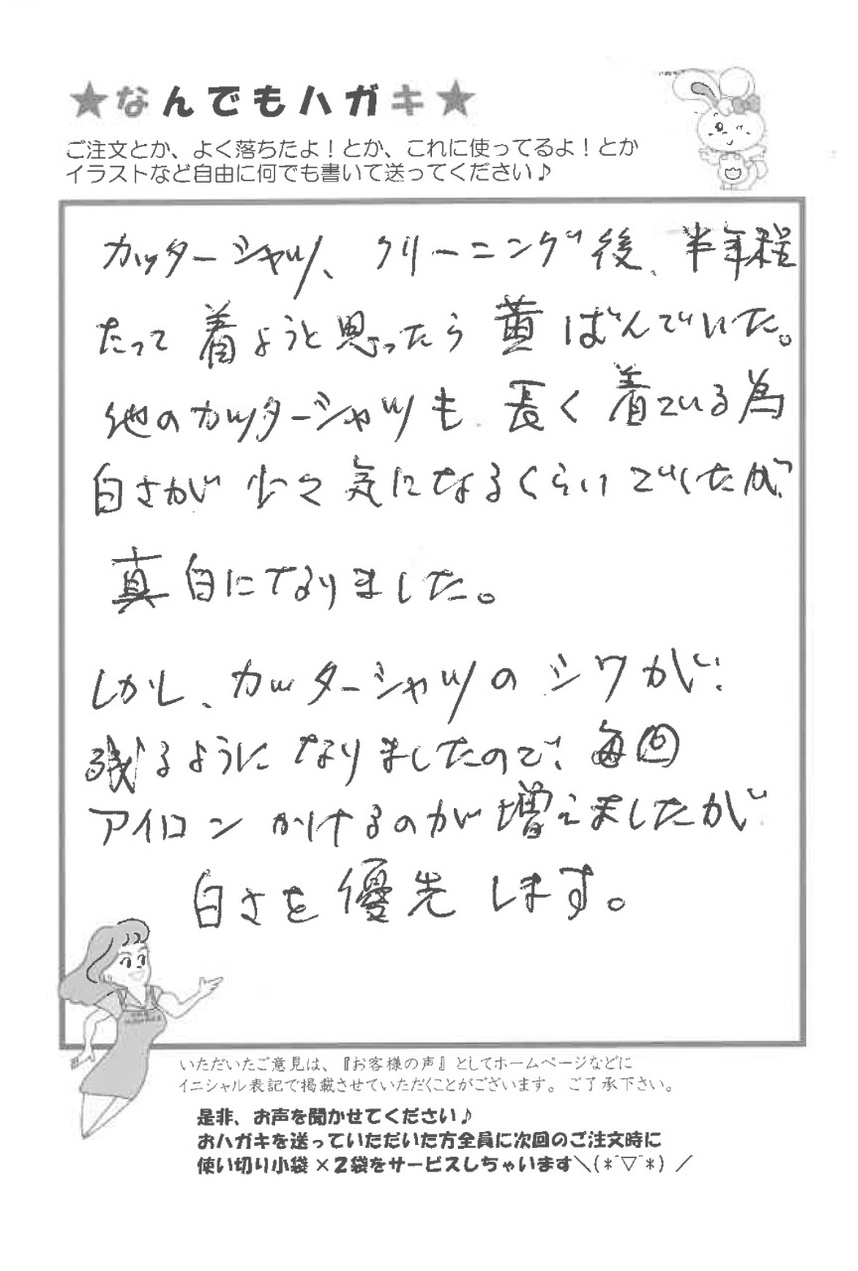 ★なんでもハガキ★
ご注文とか、よく落ちたよ！とか、これに使ってるよ！とか
イラストなど自由に何でも書いて送ってください♪
カッターシャツ、クリーニング後、半年程
たって着ようと思ったら黄ばんでいた。
他のカッターシャツも、長く着ている為
白さが少々気になるくらいでしたが、
真白になりました。
しかし、カッターシャツのシワが
残るようになりましたので、毎回
アイロンかけるのが増えましたが
白さを優先します。
いただいたご意見は、『お客様の声』としてホームページなどに
イニシャル表記で掲載させていただくことがございます。ご了承下さい。
是非、お声を聞かせてください♪
おハガキを送っていただいた方全員に次回のご注文時に
使い切り小袋×2袋をサービスしちゃいます＼(*ˆ▽ˆ*)／